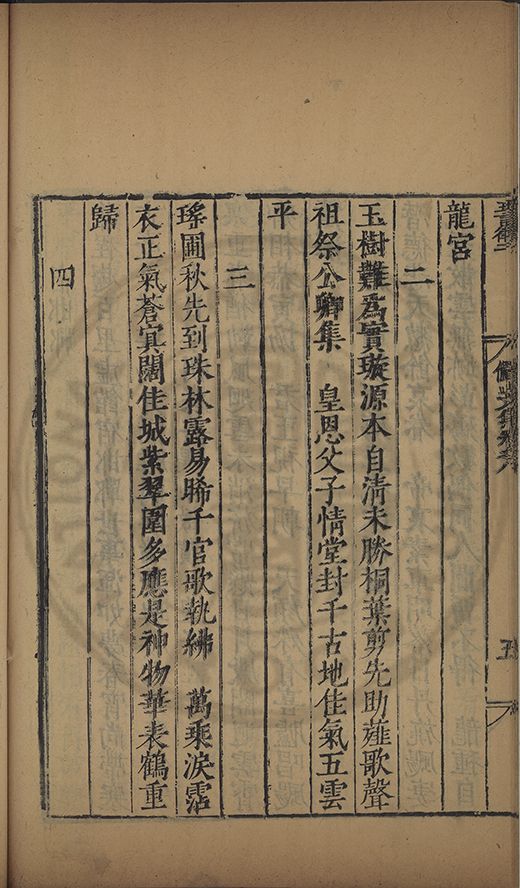 龍宮
二
玉樹難爲實璇源本自清未勝桐葉剪先助薤歌聲
祖祭公卿集 皇恩父子情堂封千古地佳氣五雲
平
三
瑤圃秋先到珠林露易晞千官歌執紼 萬乘淚霑
衣正氣蒼宜闊佳城紫翠圍多應是神物華表鶴重
歸
四
五